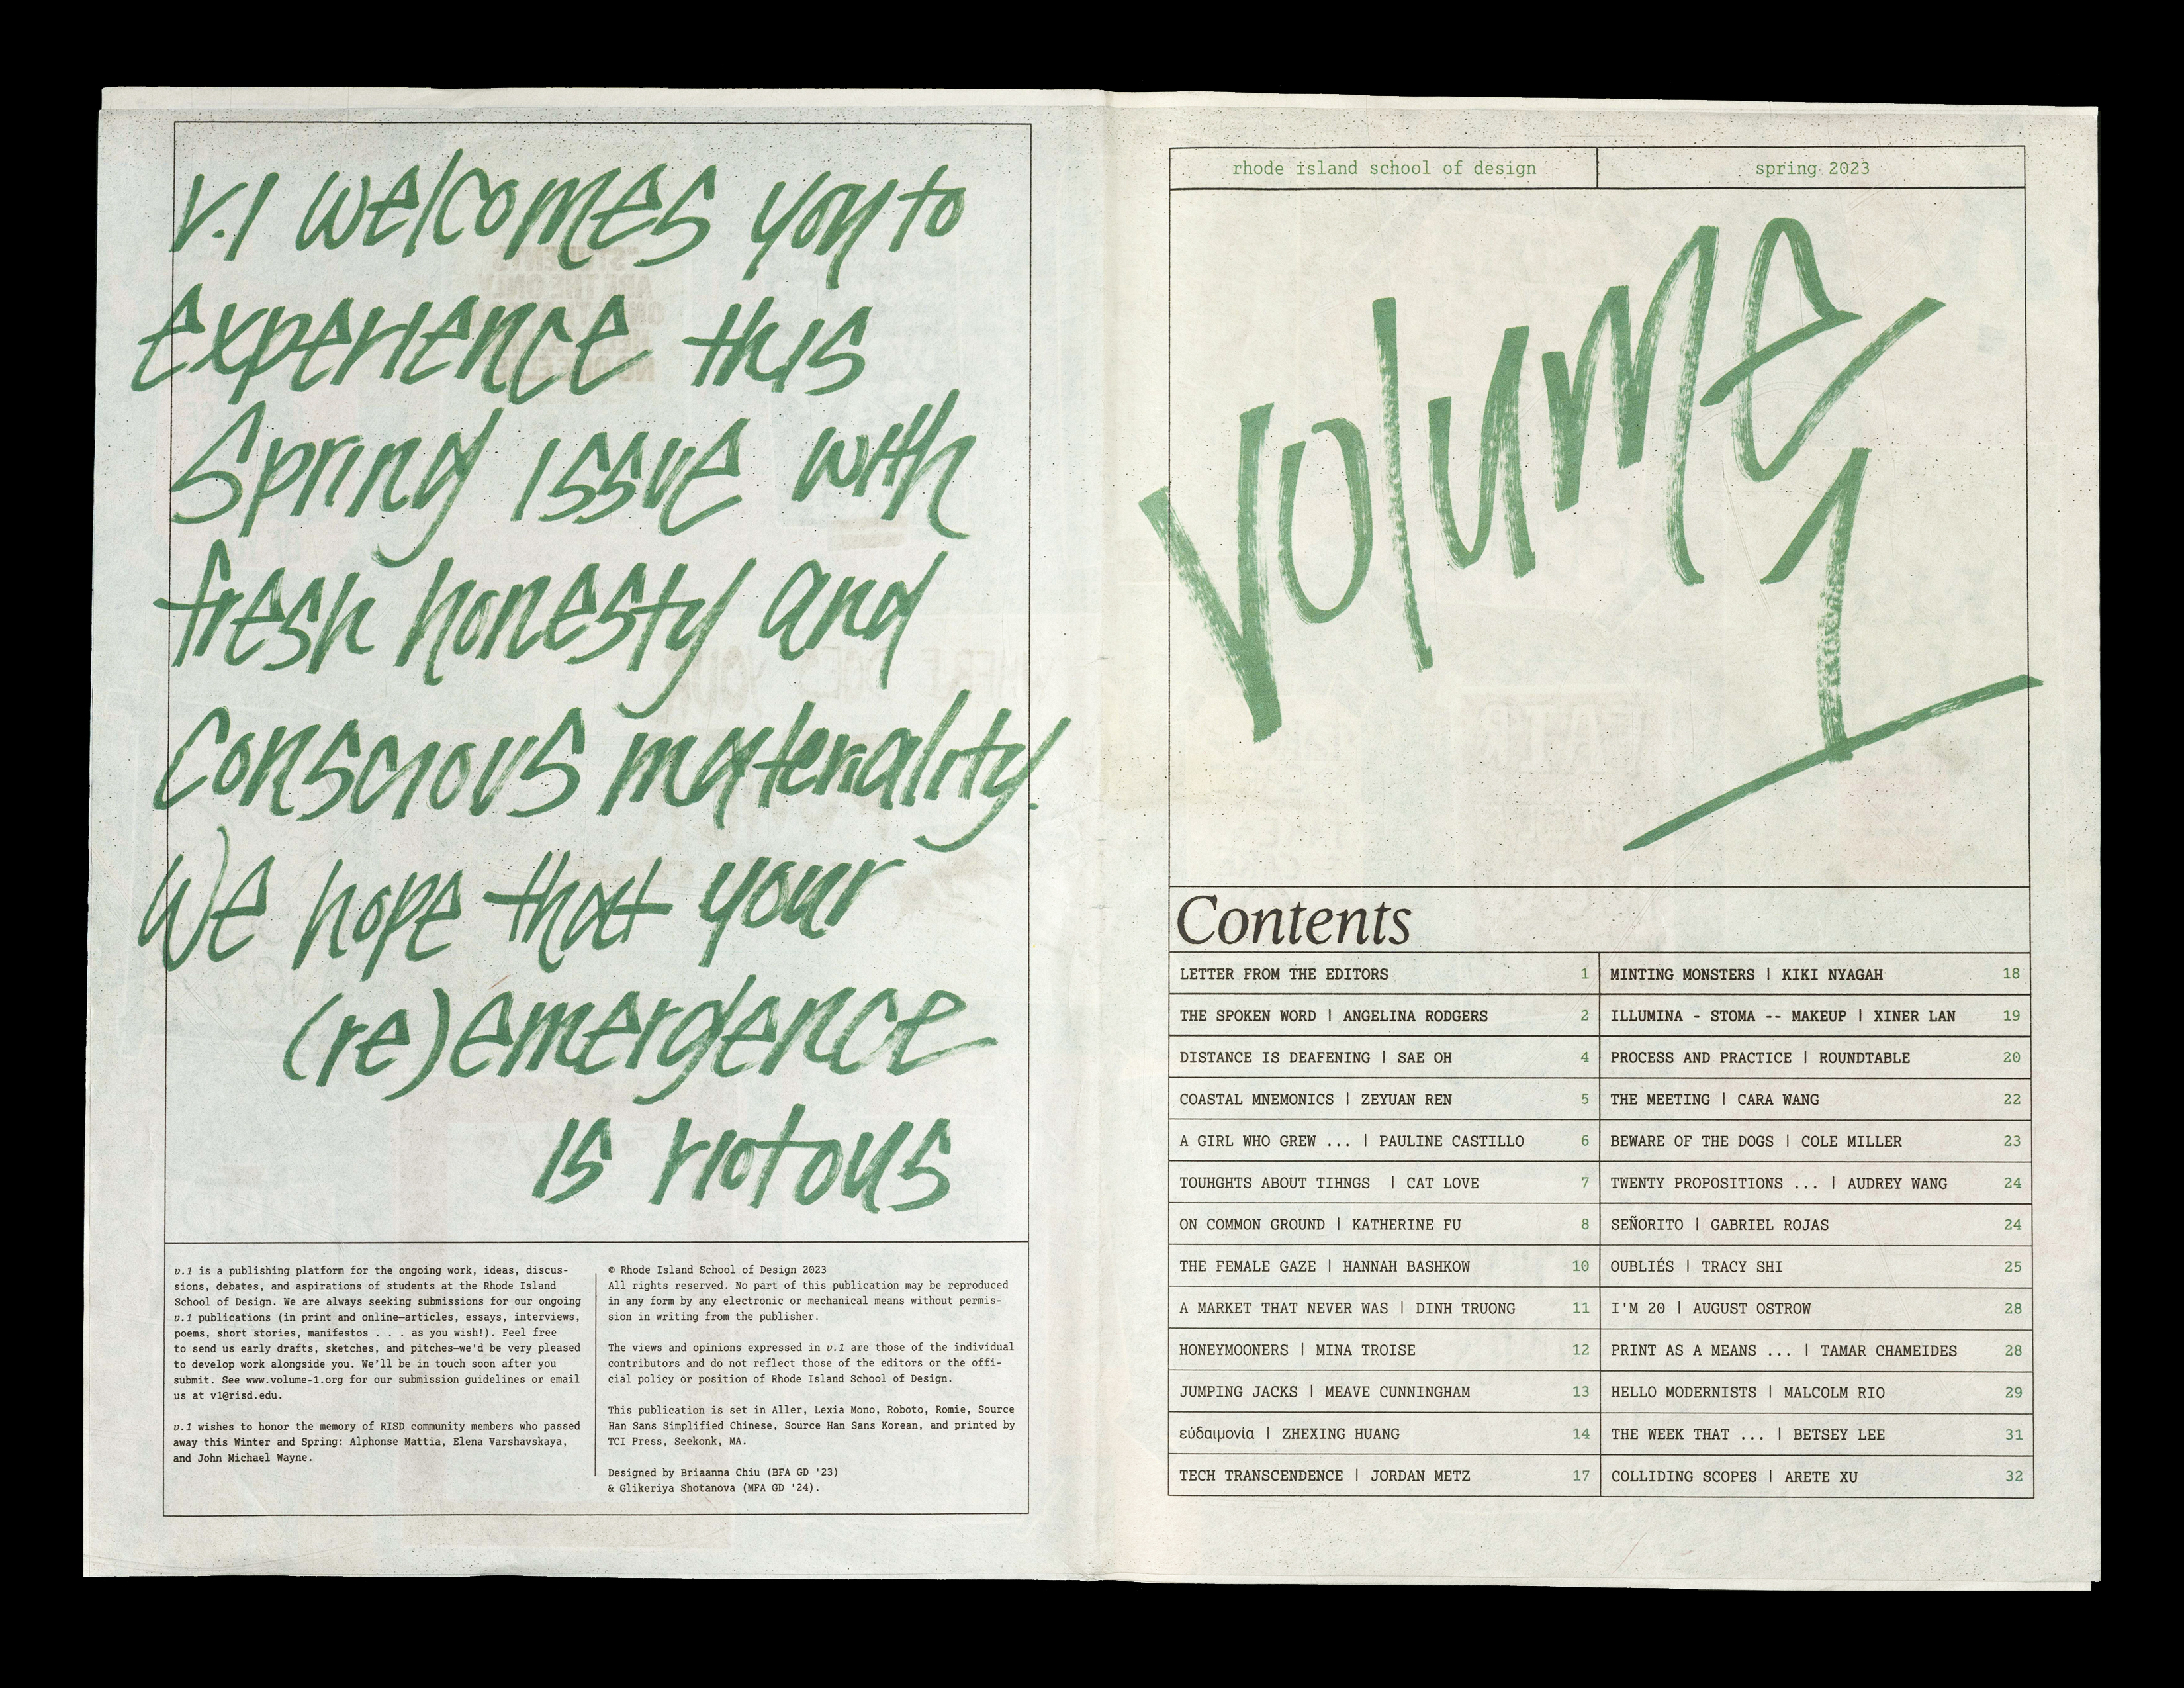 v.1 welcomes you to
experience this
Spring issue with
fresh honesty and
conscious materiality.
We hope that your
(re)emergence
is riotous
v.1 is a publishing platform for the ongoing work, ideas, discus-
sions, debates, and aspirations of students at the Rhode Island
School of Design. We are always seeking submissions for our ongoing
v.1 publications (in print and online—articles, essays, interviews,
poems, short stories, manifestos . . . as you wish!). Feel free
to send us early drafts, sketches, and pitches—we'd be very pleased
to develop work alongside you. We'll be in touch soon after you
submit. See www.volume-1.org for our submission guidelines or email
us at v1@risd.edu.
v.1 wishes to honor the memory of RISD community members who passed
away this Winter and Spring: Alphonse Mattia, Elena Varshavskaya,
and John Michael Wayne.
© Rhode Island School of Design 2023
All rights reserved. No part of this publication may be reproduced
in any form by any electronic or mechanical means without permis-
sion in writing from the publisher.
The views and opinions expressed in v.1 are those of the individual
contributors and do not reflect those of the editors or the offi-
cial policy or position of Rhode Island School of Design.
This publication is set in Aller, Lexia Mono, Roboto, Romie, Source
Han Sans Simplified Chinese, Source Han Sans Korean, and printed by
TCI Press, Seekonk, MA.
Designed by Briaanna Chiu (BFA GD '23)
& Glikeriya Shotanova (MFA GD '24).
rhode island school of design
spring 2023
volume
1
Contents
LETTER FROM THE EDITORS 1
THE SPOKEN WORD | ANGELINA RODGERS 2
DISTANCE IS DEAFENING | SAE OH 4
COASTAL MNEMONICS | ZEYUAN REN 5
A GIRL WHO GREW ... | PAULINE CASTILLO 6
TOUHGHTS ABOUT TIHNGS | CAT LOVE 7
ON COMMON GROUND | KATHERINE FU 8
THE FEMALE GAZE | HANNAH BASHKOW 10
A MARKET THAT NEVER WAS | DINH TRUONG 11
HONEYMOONERS | MINA TROISE 12
JUMPING JACKS | MEAVE CUNNINGHAM 13
εύδαιμονία | ZHEXING HUANG 14
TECH TRANSCENDENCE | JORDAN METZ 17
MINTING MONSTERS | KIKI NYAGAH 18
ILLUMINA - STOMA -- MAKEUP | XINER LAN 19
PROCESS AND PRACTICE | ROUNDTABLE 20
THE MEETING | CARA WANG 22
BEWARE OF THE DOGS | COLE MILLER 23
TWENTY PROPOSITIONS ... | AUDREY WANG 24
SEÑORITO | GABRIEL ROJAS 24
OUBLIÉS | TRACY SHI 25
I'M 20 | AUGUST OSTROW 28
PRINT AS A MEANS ... | TAMAR CHAMEIDES 28
HELLO MODERNISTS | MALCOLM RIO 29
THE WEEK THAT ... | BETSEY LEE 31
COLLIDING SCOPES | ARETE XU 32